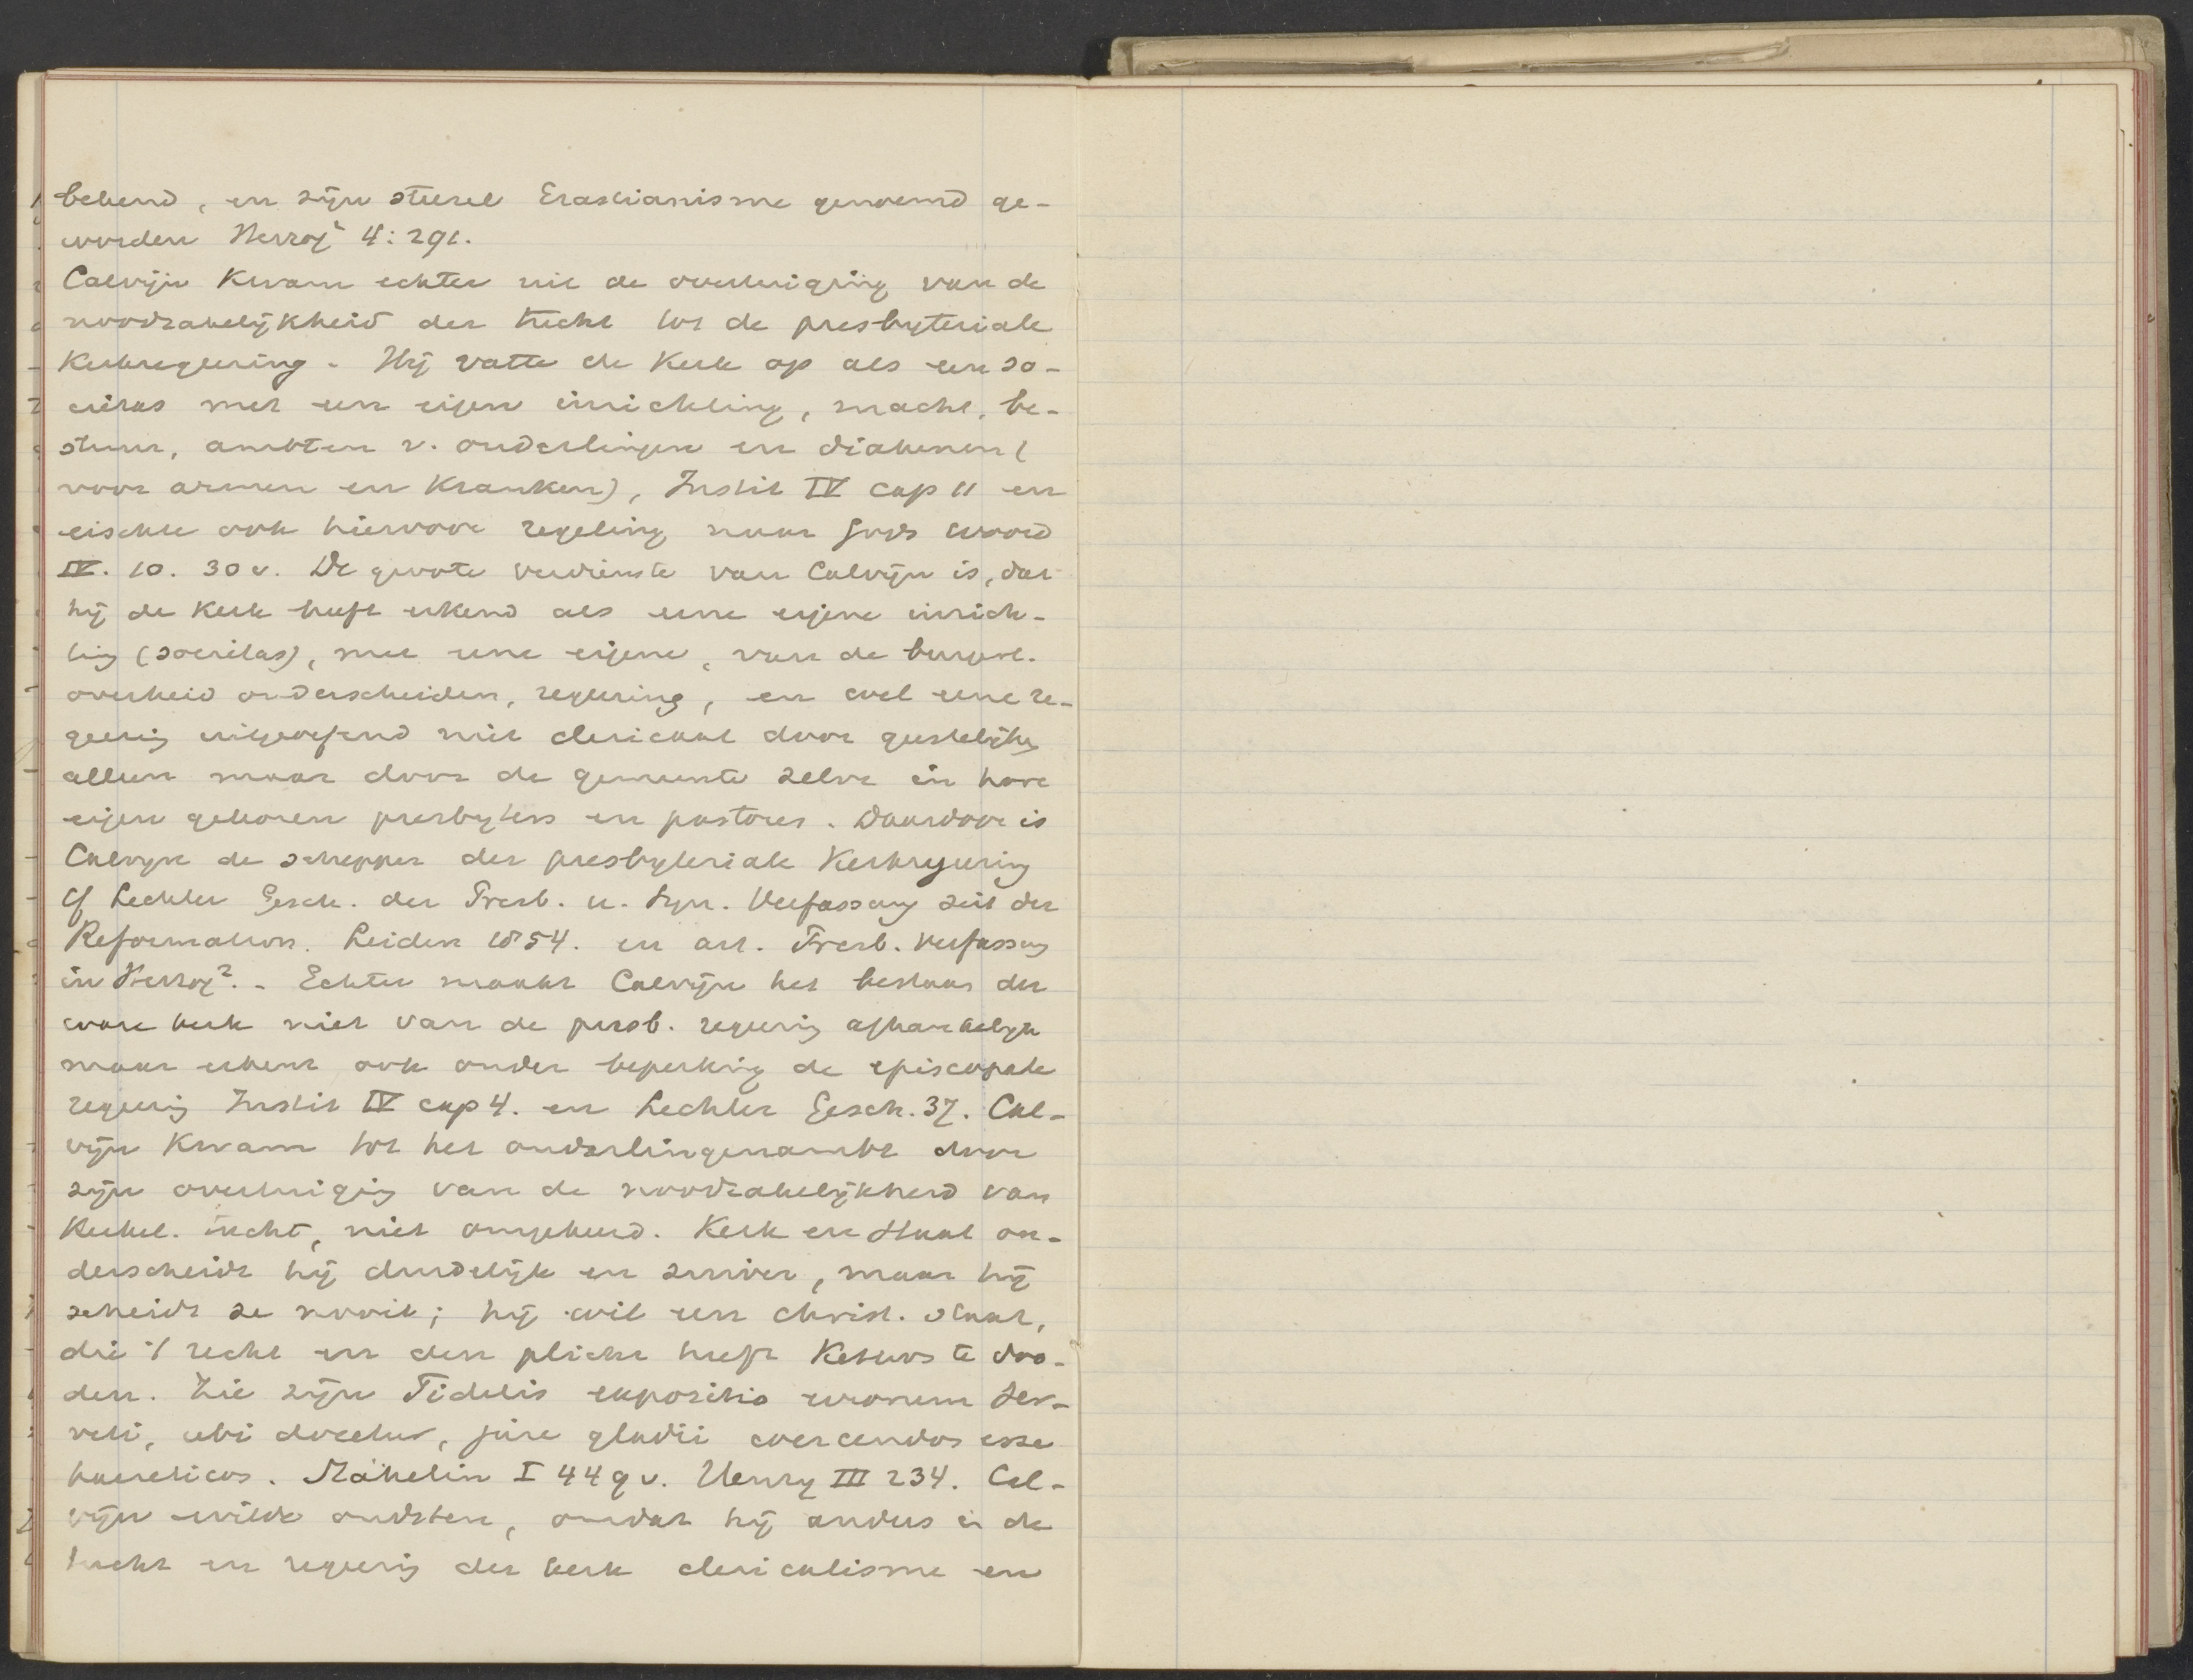 bekend, en zijn stelsel Erastianisme genoemd ge-
worden Herzog² 4: 291.
Calvijn kwam echter uit de overtuiging van de
noodzakelijkheid der tucht tot de presbyteriale
Kerkregeering. Hij vatte de Kerk op als een so-
cietas met een eigen inrichting, macht, be-
stuur, ambten v. ouderlingen en diakenen (
voor armen en kranken), Instit IV cap 11 en
eischte ook hiervoor regeling naar Gods woord
IV. 10. 30 v. De groote verdienste van Calvijn is, dat
hij de Kerk heeft erkend als eene eigene inrich-
ting (societas), met eene eigene, van de burgerl.
overheid onderscheiden, regeering, en wel eene re-
geering uitgeoefend niet clericaal door geestelijken
alleen maar door de gemeente zelve in hare
eigen gekozen presbyters en pastores. Daardoor is
Calvijn de schepper der presbyteriale Kerkregeering
cf Lechler Gesch. der Presb. u. Syn. Verfassung seit der
Reformation. Leiden 1854. en art. Presb. Verfassung
in Herzog². - Echter maakt Calvijn het bestaan der
ware kerk niet van de presb. regeering afhankelijk
maar erkent ook onder beperking de episcopale
regeering Instit IV cap 4. en Lechler Gesch. 37. Cal-
vijn kwam tot het ouderlingenambt door
zijn overtuiging van de noodzakelijkheid van
Kerkel. tucht, niet omgekeerd. Kerk en Staat on-
derscheidt hij duidelijk en zuiver, maar hij
scheidt ze nooit; hij wil een christ. staat,
die 't recht en den plicht heeft Ketters te doo-
den. Zie zijn Fidelis expositio errorum Ser-
veti, ubi docetur, jure gladii coercendos esse
haereticos. Stähelin I 449 v. Henry III 234. Cal-
vijn wilde oudsten, omdat hij anders in de
tucht en regeering der kerk clericalisme en